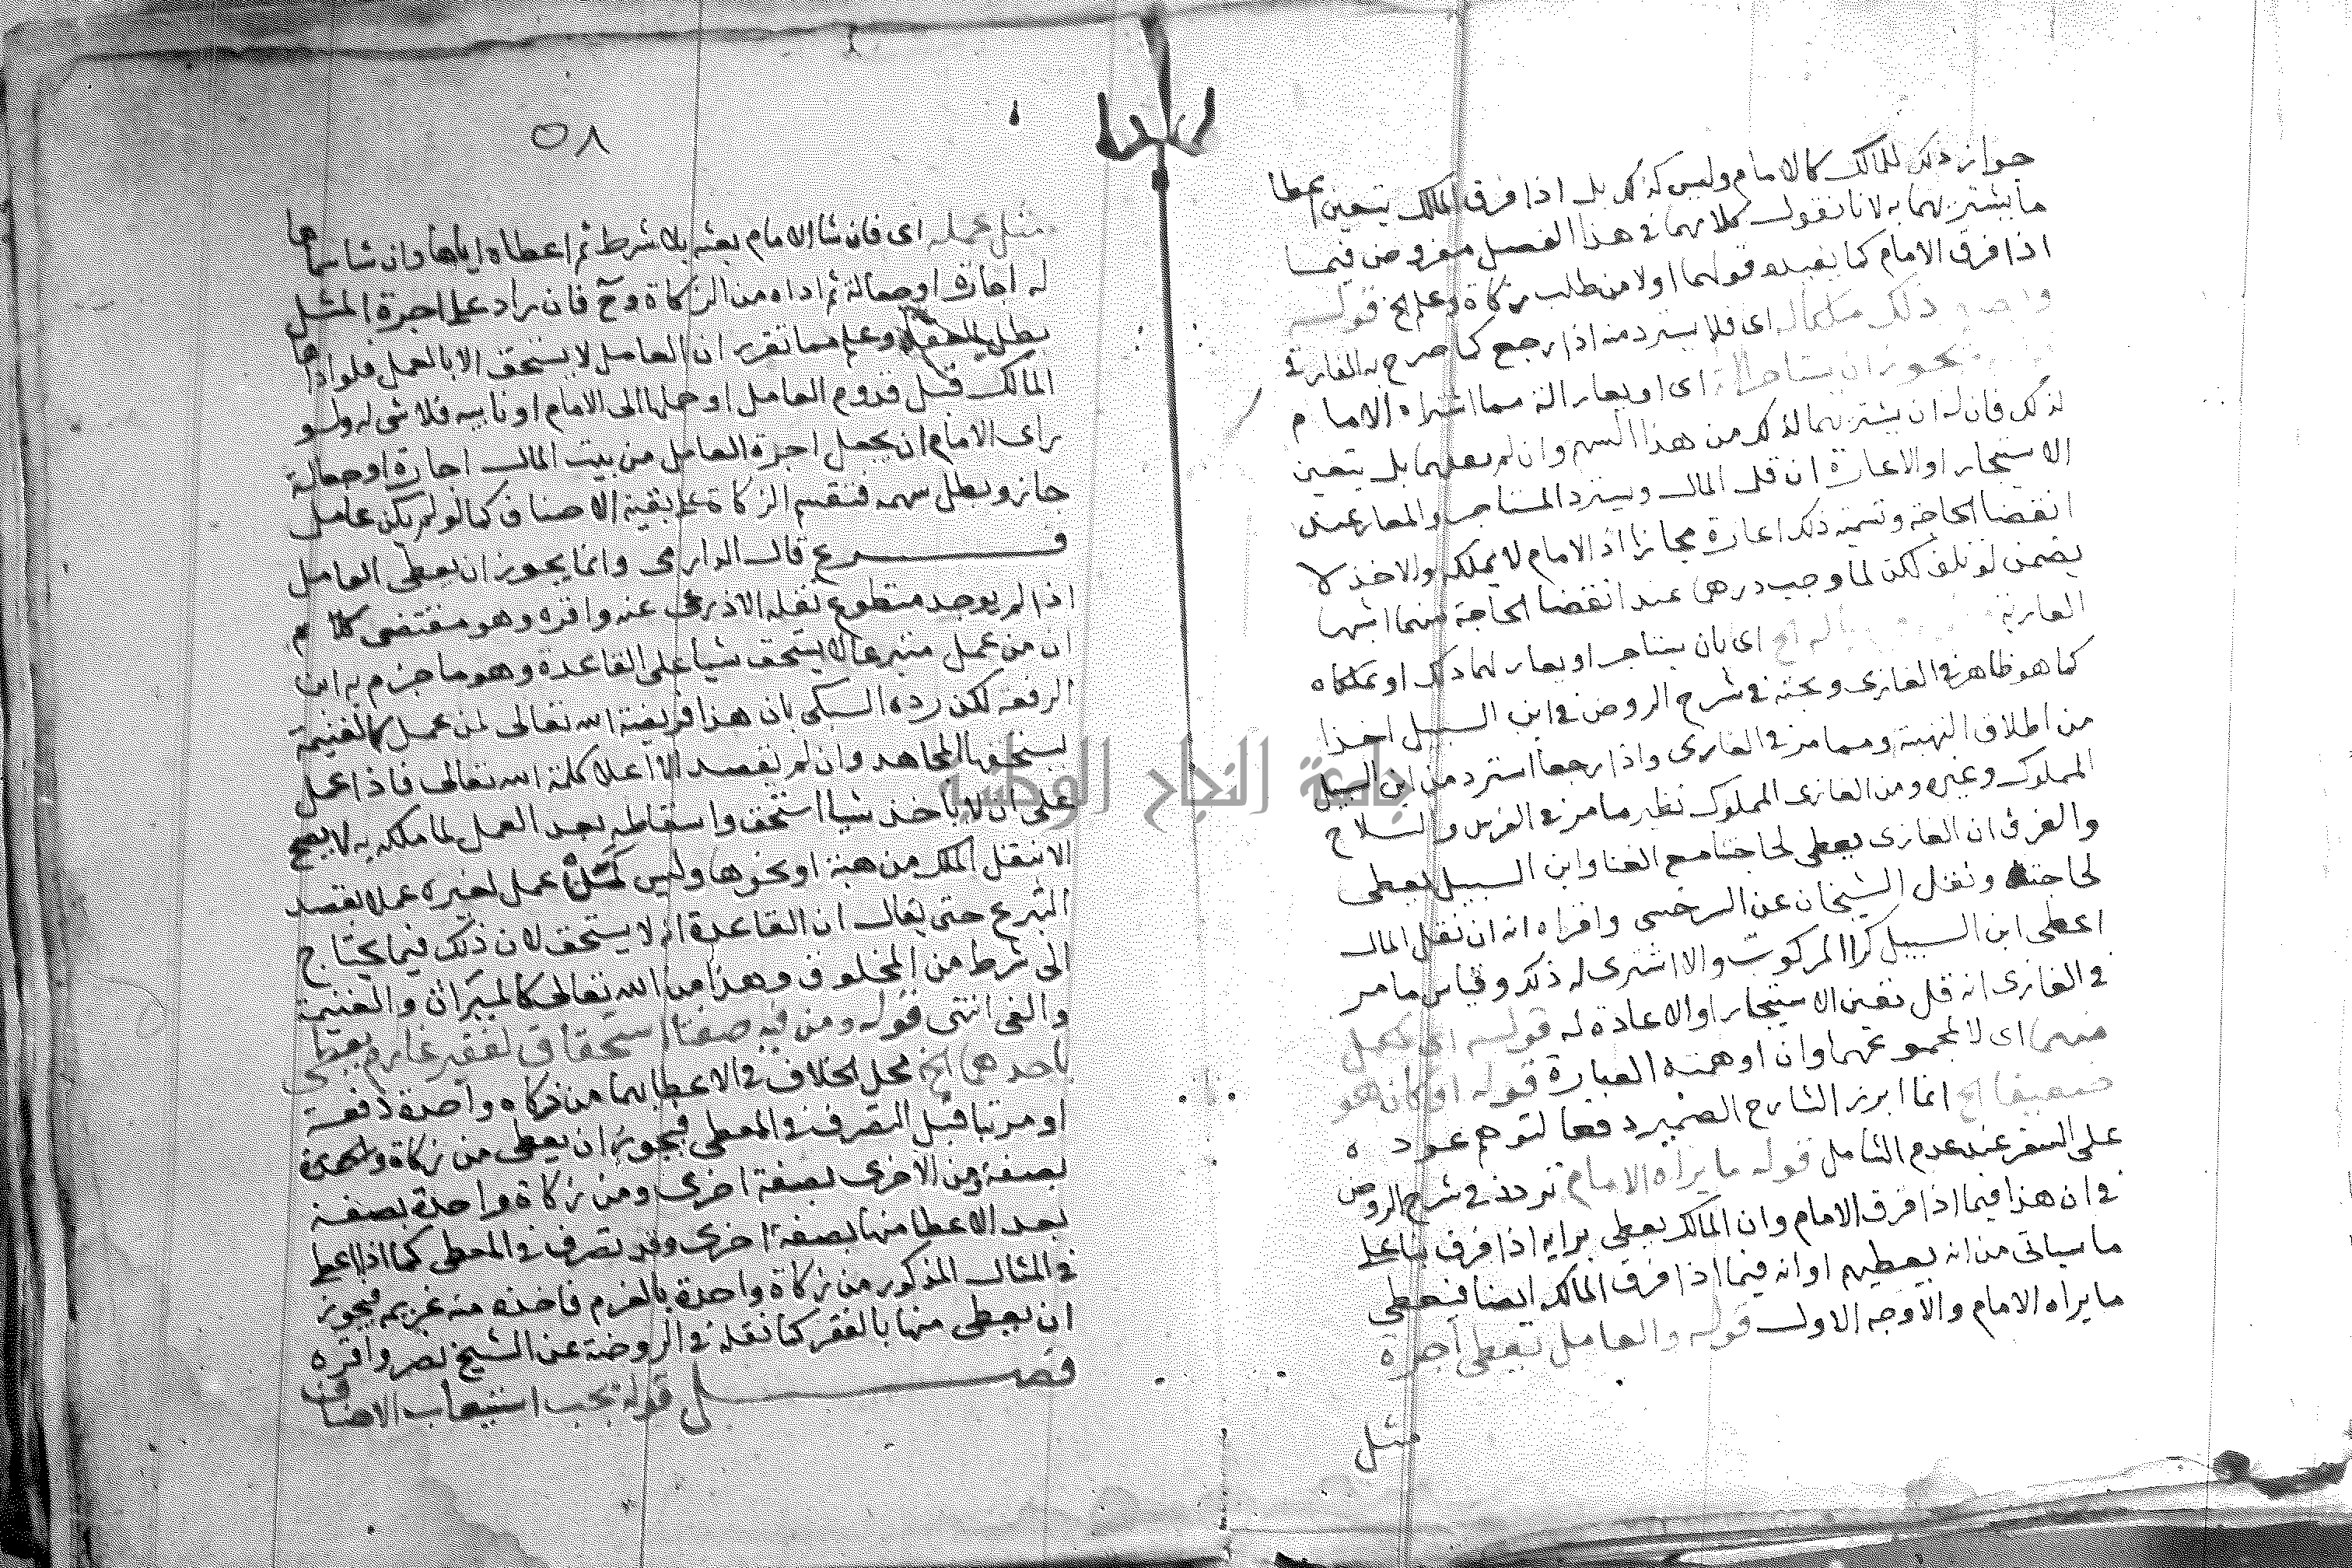 جواز ذلك للمالك كالامام وليس كذلك بل اذا فرق المالك يتعين اعطا
ما يشتريهما به لانا نقول كلامهما في هذا الفصل مفروض فيما
اذا فرق الامام كما يفيده قولهما اولا من طلب زكاة وعلم الخ قوله
ذلك ملكا له اى فلا يسترد منه اذا رجع كما صرح به الفارقى
يجوز ان يستاجر له اى او يعار الة مما اشتراه الامام
لذلك فان له ان يشتريهما لذلك من هذا السهم وان لم يعلهما بل يتعين
الاستيجار او الاعارة ان قل المال ويسترد المستاجر والمعار عند
انقضا الحاجة وتسمية ذلك اعارة مجازا اذ الامام لا يملكه والاخذ لا
يضمن لو تلف لكن لما وجب ردهما عند انقضا الحاجة منهما اشبها
العارية له الخ اى بان يستاجر او يعار لهما ذلك او يملكاه
كما هو ظاهر في الغازى وبحثه في شرح الروض في ابن السبيل اخذا
من اطلاق التهيئة ومما مر في الغازى واذا رجعا استرد من ابن السبيل
المملوك وغيره ومن الغازى المملوك نظير ما مر في الفرس والسلاح
والفرق ان الغازى يعطى لحاجتنا مع الغنا وابن السبيل يعطى
لحاجته ونقل الشيخان عن السرخسى واقراه انه ان نقل المال
اعطى ابن السبيل كرا المركوب والا اشترى له ذلك وقياس ما مر
في الغازى انه قل تعين الاستيجار او الاعادة له قوله اى لكل
منهما اى لا لمجموعهما وان اوهمته العبارة قوله او كان هو
ضعيفا الخ انما ابرز الشارح الضمير دفعا لتوهم عوده
على السفر عند عدم التامل قوله ما يراه الامام تردد في شرح الروض
في ان هذا فيما اذا فرق الامام وان المالك يعطى برايه اذا فرق بنا على
ما سياتى من انه يعطيهم او انه فيما اذا فرق المالك ايضا فيعطى
ما يراه الامام والاوجه الاول قوله والعامل يعطى اجرة
مثل
٥٨
مثل عمله اى فان شا الامام بعثه بلا شرط ثم اعطاه اياها وان شا سماها
له اجارة او جعالة ثم اداه من الزكاة وح فان زاد على اجرة المثل
بطل وعلم مما تقرر ان العامل لا يستحق الا بالعمل فلو اداها
المالك قبل قدوم العامل او حملها الى الامام او نايبه فلا شى له ولو
راى الامام ان يجعل اجرة العامل من بيت المال اجارة او جعالة
جاز وبطل سهمه فتقسم الزكاة على بقية الاصناف كما لو لم يكن عامل
فرع قال الدارمى وانما يجوز ان يعطى العامل
اذا لم يوجد متطوع نقله الاذرعى عنه واقره وهو مقتضى كلامهم
ان من عمل متبرعا لا يستحق شيا على القاعدة وهو ما جزم به ابن
الرفعة لكن رده السبكى بان هذا فريضة الله تعالى لمن عمل كالغنيمة
يستحقها المجاهد وان لم يقصد الا اعلا كلمة الله تعالى فاذا عمل
على ان لا ياخذ شيا استحق واسقاطه بعد العمل لما ملكه به لا يصح
الا بنقل الملك من هبة او نحوها وليس كمثل عمل لغيره عملا بقصد
التبرع حتى يقال ان القاعدة انه لا يستحق لان ذلك فيما يحتاج
الى شرط من المخلوق وهذا من الله تعالى كالميراث والغنيمة
والفى انتهى قوله ومن فيه صفتا استحقاق لفقير غارم يعطى
باحدهما الخ محل الخلاف في الاعطا بهما من زكاه واحدة دفعة
او مرتبا قبل التصرف في المعطى فيجوز ان يعطى من زكاة واحدة
بصفة ومن الاخرى بصفة اخرى ومن زكاة واحدة بصفة
بعد الاعطا منها بصفة اخرى وقد تصرف في المعطى كما اذا اعطى
في المثال المذكور من زكاة واحدة بالغرم فاخذه منه غريمه فيجوز
ان يعطى منها بالفقر كما نقله في الروضة عن الشيخ نصر واقره
فصل قوله يجب استيعاب الاصناف
جامعة النجاح الوطنية